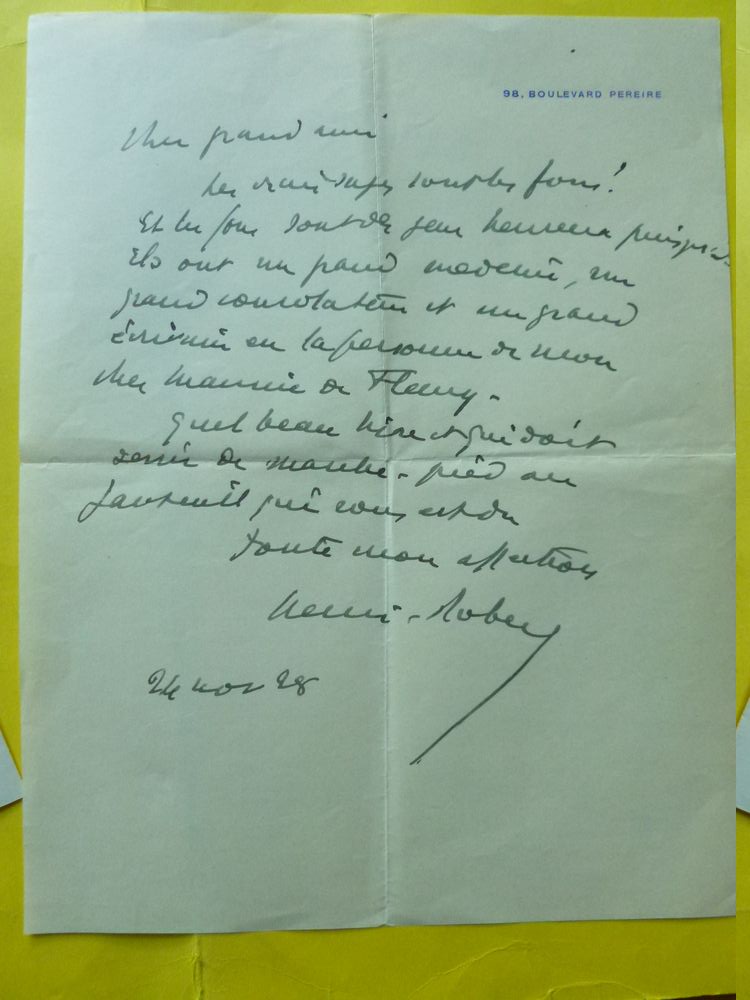 98, BOULEVARD PEREIRE
Cher grand ami
Les vrais sages sont les fous!
Et les fous sont des gens heureux puisque
ils ont un grand medecin, un
grand consolateur et un grand
écrivain en la personne de mon
cher Maurice de Fleury.
Quel beau livre et qui doit
servir de marche-pied au
fauteuil qui vous est du
Toute mon affection
Henri-Robert
24 nov 28